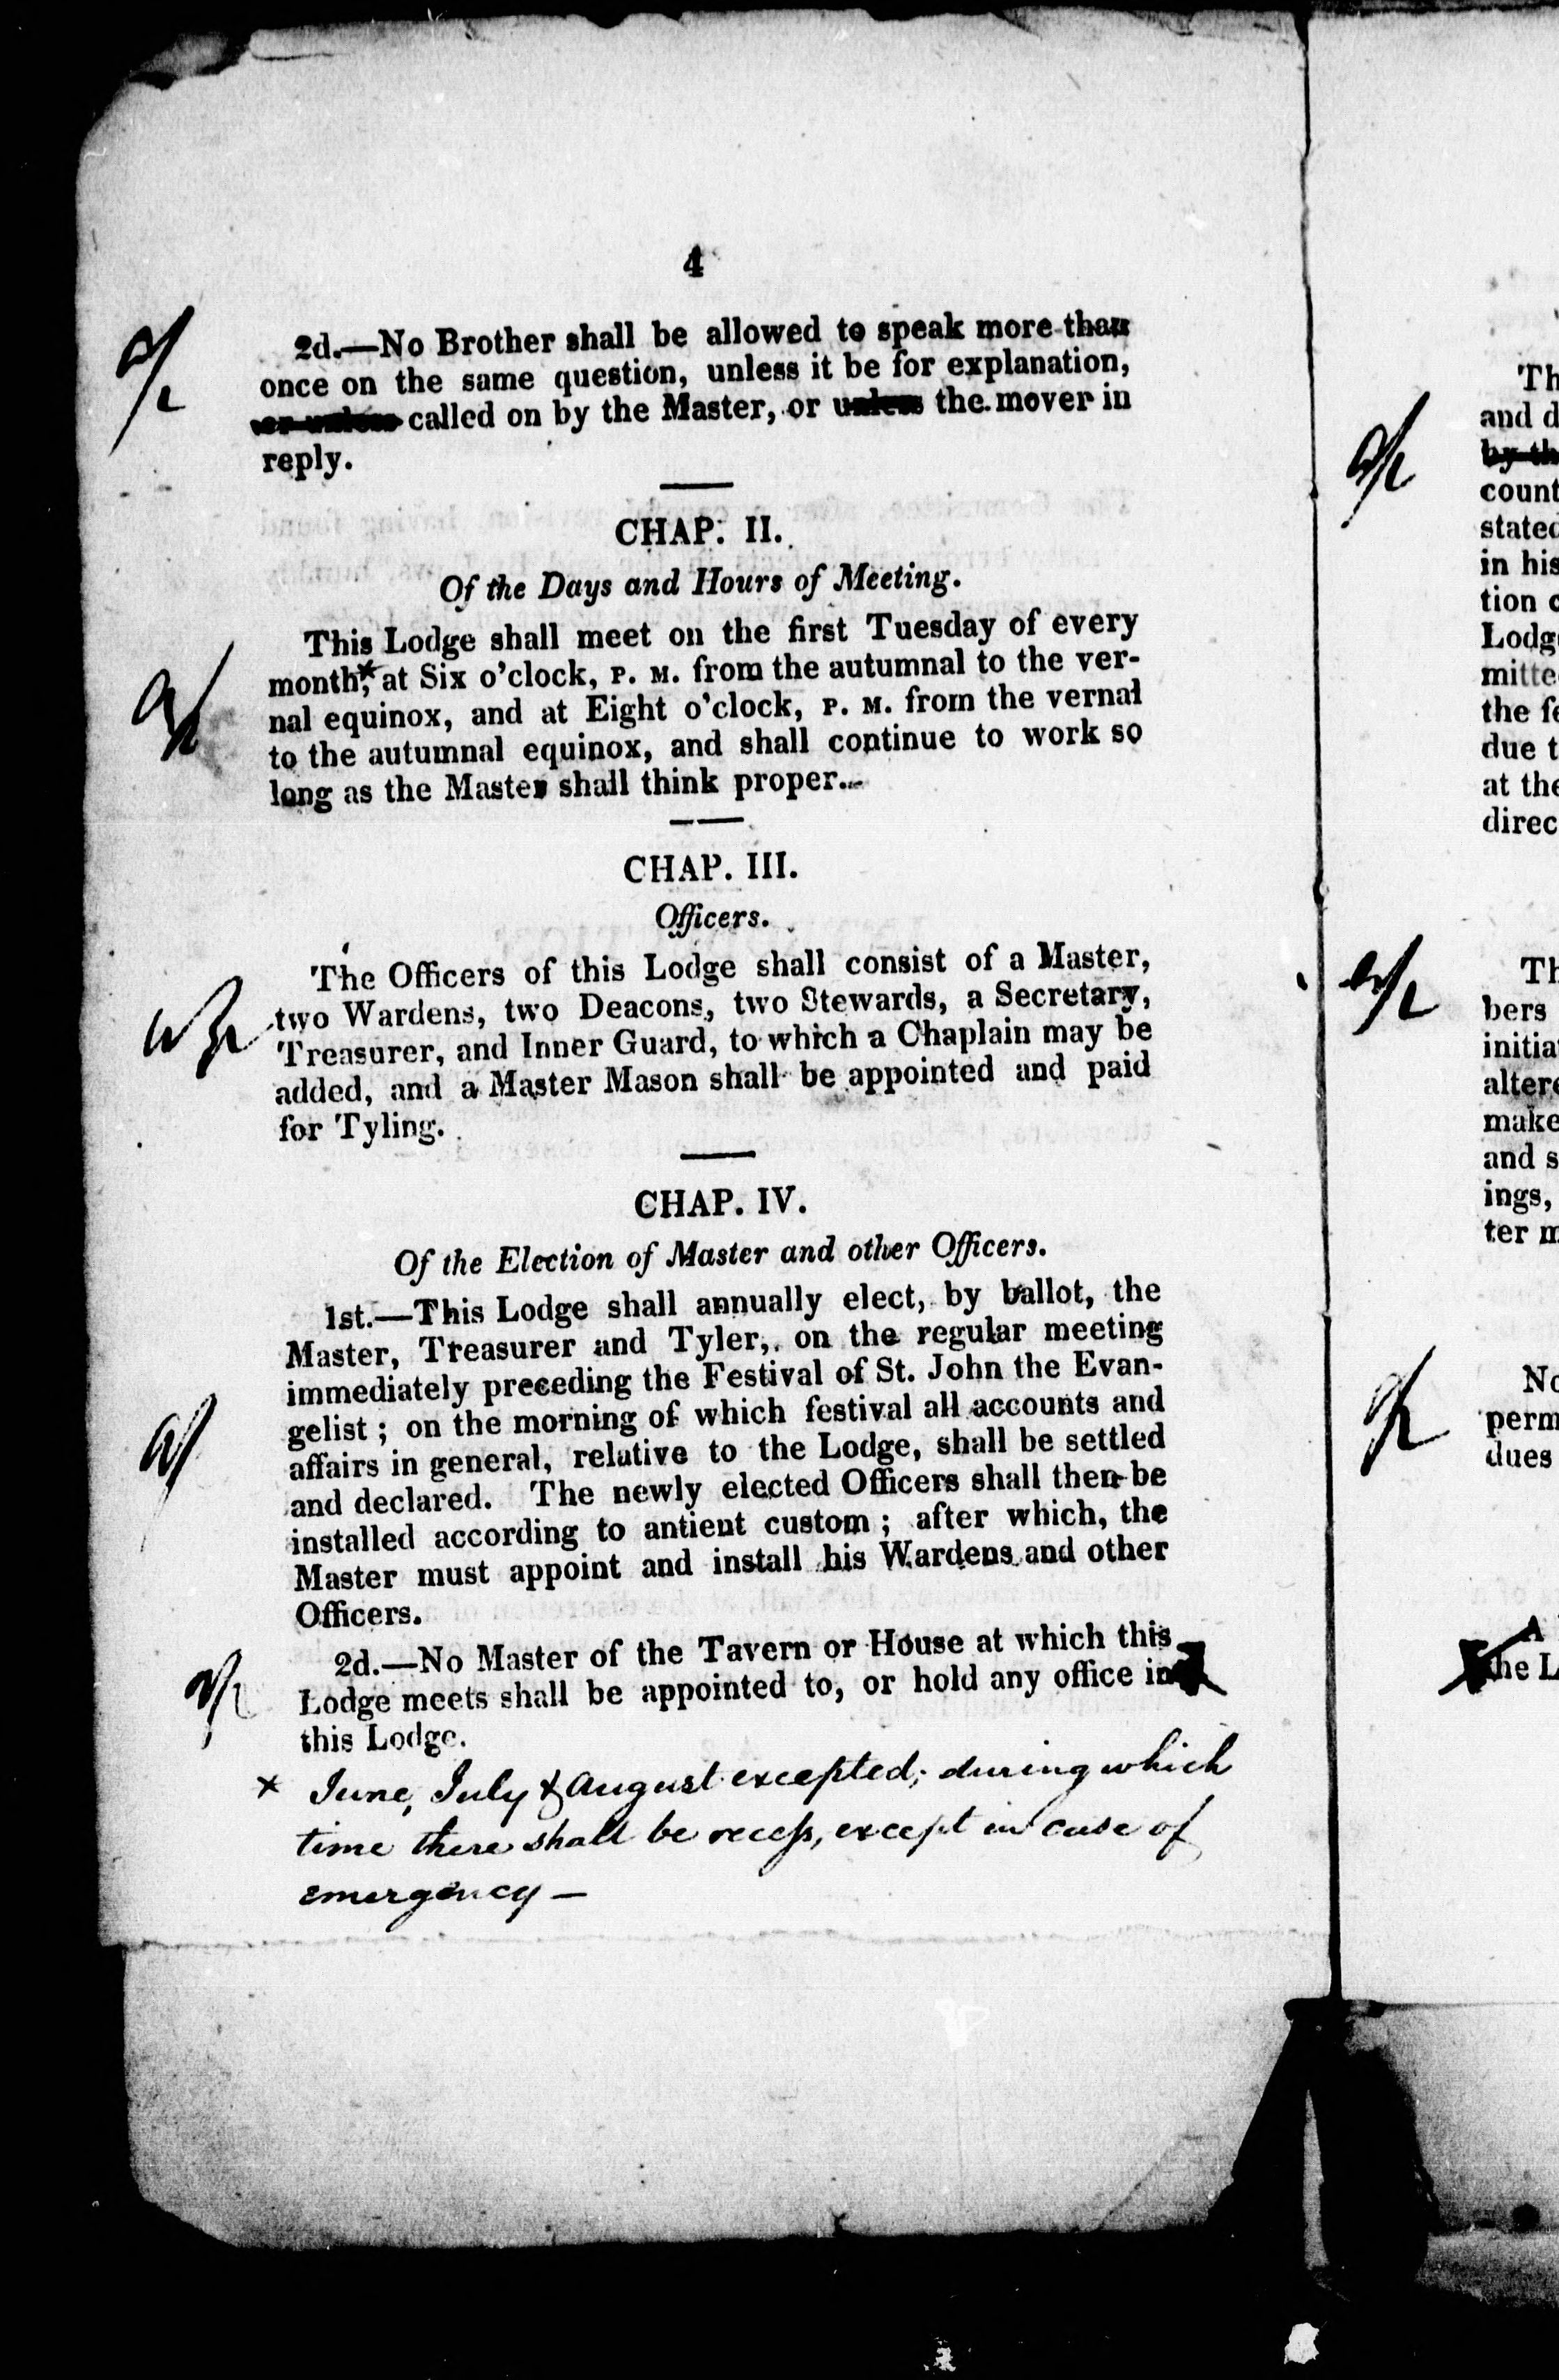 4
2d.—No Brother shall be allowed to speak more than
once on the same question, unless it be for explanation,
or unless called on by the Master, or unless the mover in
reply.
CHAP. II.
Of the Days and Hours of Meeting.
This Lodge shall meet on the first Tuesday of every
month,* at Six o'clock, P. M. from the autumnal to the ver-
nal equinox, and at Eight o'clock, P. M. from the vernal
to the autumnal equinox, and shall continue to work so
long as the Master shall think proper.
CHAP. III.
Officers.
The Officers of this Lodge shall consist of a Master,
two Wardens, two Deacons, two Stewards, a Secretary,
Treasurer, and Inner Guard, to which a Chaplain may be
added, and a Master Mason shall be appointed and paid
for Tyling.
CHAP. IV.
Of the Election of Master and other Officers.
1st.—This Lodge shall annually elect, by ballot, the
Master, Treasurer and Tyler, on the regular meeting
immediately preceding the Festival of St. John the Evan-
gelist; on the morning of which festival all accounts and
affairs in general, relative to the Lodge, shall be settled
and declared. The newly elected Officers shall then be
installed according to antient custom; after which, the
Master must appoint and install his Wardens and other
Officers.
2d.—No Master of the Tavern or House at which this
Lodge meets shall be appointed to, or hold any office in
this Lodge.
x June, July & August excepted; during which
time there shall be recess, except in case of
emergency —
Th
and d
by th
count
stated
in his
tion o
Lodg
mitte
the fe
due t
at the
direc
Th
bers
initia
altere
make
and s
ings,
ter m
No
perm
dues
A
the L